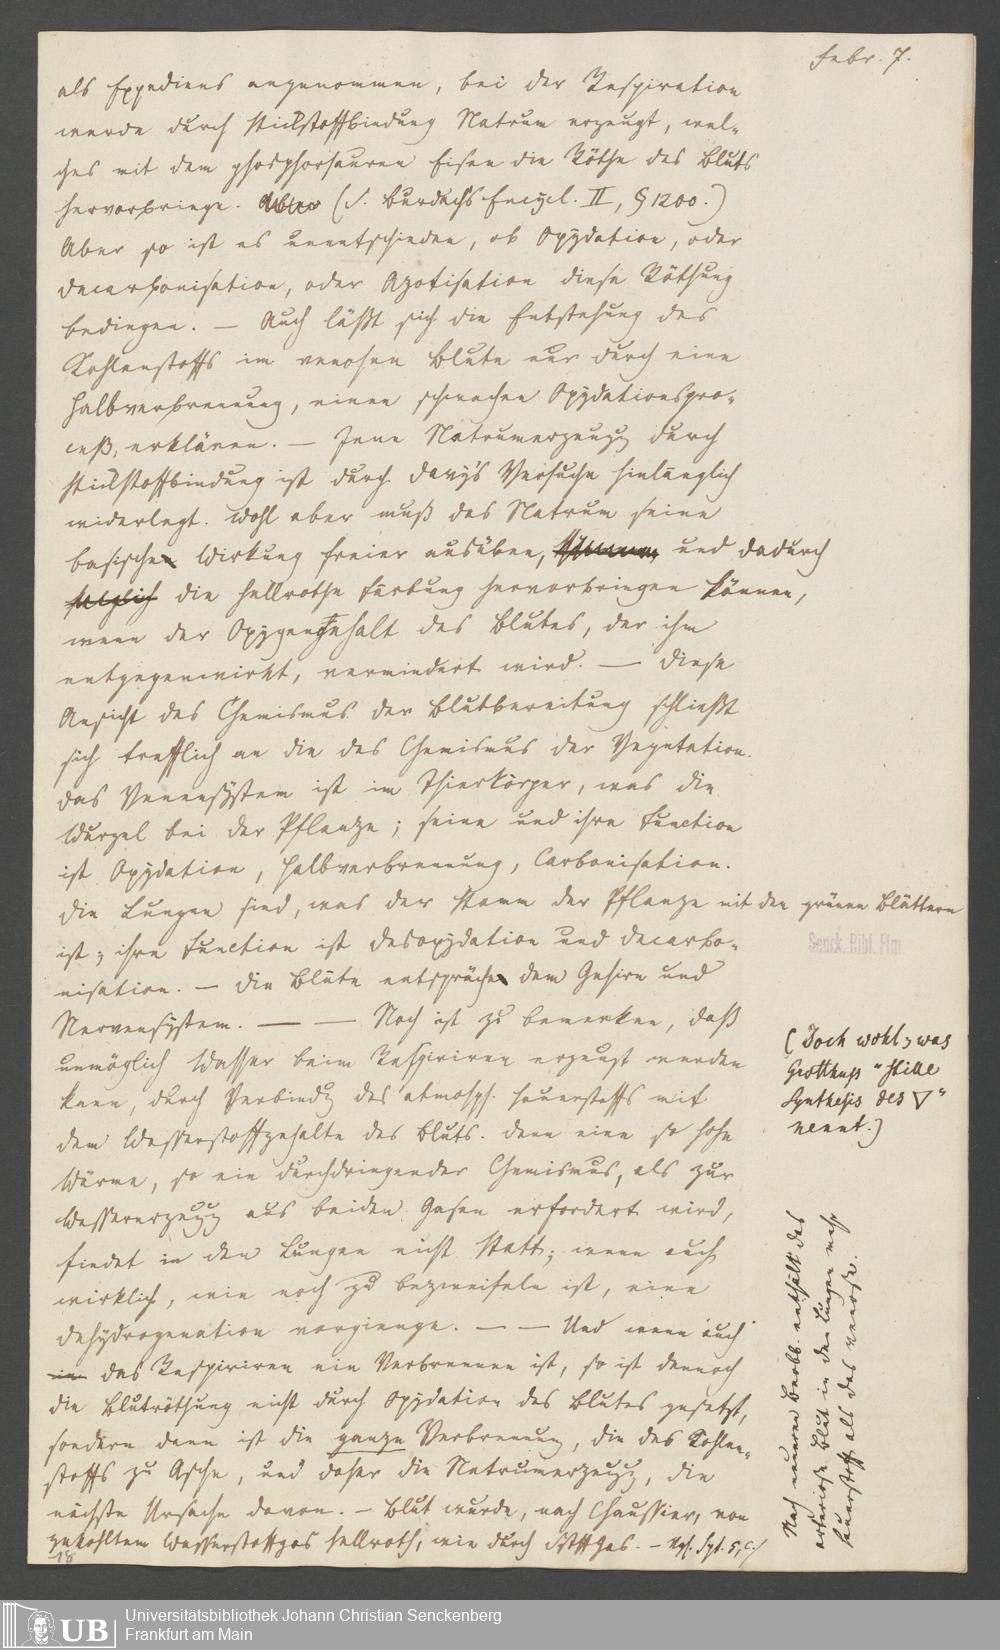 Febr. 7.
als Expediens angenommen, bei der Respiration
werde durch Stickstoffbindung Natrum erzeugt, wel-
ches mit dem phosphorsauren Eisen die Röthe des Bluts
hervorbringe. (S. Burdach's Encycl. II, § 1200.)
Aber so ist es unentschieden, ob Oxydation, oder
Decarbonisation, oder Azotisation diese Röthung
bedingen. — Auch läßt sich die Entstehung des
Kohlenstoffs im venosen Blute nur durch eine
Halbverbrennung, einen schwachen Oxydationspro-
ceß, erklären. — Jene Natrumerzeugg durch
Stickstoffbindung ist durch Davy's Versuche hinlänglich
widerlegt. Wohl aber muß das Natrum seine
basische Wirkung freier ausüben, und dadurch
die hellrothe Färbung hervorbringen können,
wenn der Oxygengehalt des Blutes, der ihm
entgegenwirkt, vermindert wird. — Diese
Ansicht des Chemismus der Blutbereitung schließt
sich trefflich an die des Chemismus der Vegetation.
Das Venensystem ist im Thierkörper, was die
Wurzel bei der Pflanze; seine und ihre Function
ist Oxydation, Halbverbrennung, Carbonisation.
Die Lungen sind, was der Stamm der Pflanze mit den grünen Blättern
ist; ihre Function ist Desoxydation und Decarbo-
nisation. — Die Blüte entspräche dem Gehirn und
Nervensystem. — — Noch ist zu bemerken, daß
unmöglich Wasser beim Respiriren erzeugt werden
kann, durch Verbindg des atmosph. Sauerstoffs mit
dem Wasserstoffgehalte des Bluts. Denn eine so hohe
Wärme, so ein durchdringender Chemismus, als zur
Wassererzeugg aus beiden Gasen erfordert wird,
findet in den Lungen nicht Statt; wenn auch
wirklich, wie noch zu bezweifeln ist, eine
Dehydrogenation vorgienge. — — Und wenn auch
das Respiriren ein Verbrennen ist, so ist dennoch
die Blutröthung nicht durch Oxydation des Blutes gesetzt,
sondern dann ist die ganze Verbrennung, die des Kohlen-
stoffs zu Asche, und daher die Natrumerzeugg, die
nächste Ursache davon. — Blut wurde, nach Chaussier, von
gekohltem Wasserstoffgas hellroth, wie durch
18
Senck. Bibl. Ffm.
(Doch wohl; was
Grotthuss "stille
Synthesis des ▽"
nennt.)
Nach neueren Beobb. enthält das
arteriose Blut in den Lungen mehr
Sauerstoff als das venose.
UB
Universitätsbibliothek Johann Christian Senckenberg
Frankfurt am Main